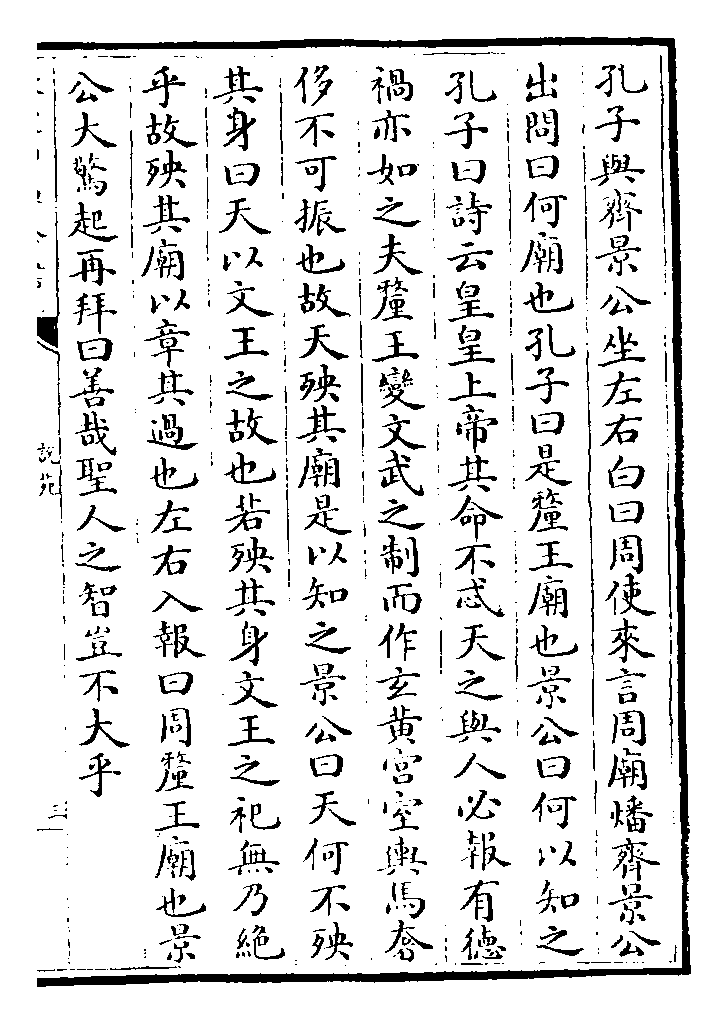 孔子與齊景公坐左右白曰周使來言周廟燔齊景公
出問曰何廟也孔子曰是釐王廟也景公曰何以知之
孔子曰詩云皇皇上帝其命不忒天之與人必報有德
禍亦如之夫釐王變文武之制而作玄黄宫室輿馬奢
侈不可振也故天殃其廟是以知之景公曰天何不殃
其身曰天以文王之故也若殃其身文王之祀無乃絶
乎故殃其廟以章其過也左右入報曰周釐王廟也景
公大驚起再拜曰善哉聖人之智豈不大乎
說苑
三